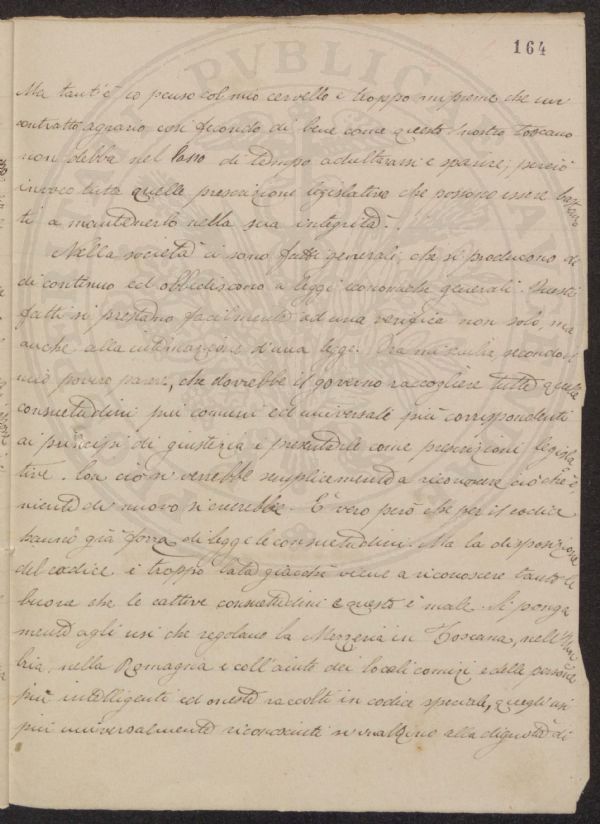 164
Ma tant'è io penso col mio cervello e troppo mi preme che un
contratto agrario così fecondo di bene come questo nostro toscano
non debba nel lasso di tempo adulterarsi e sparire; perciò
invoco tutte quelle prescrizioni legislative che possono essere bastan
ti a mantenerlo nella sua integrità.
Nella società ci sono fatti generali, che si producono di
di continuo ed obbediscono a leggi economiche generali. Questi
fatti si prestano facilmente ad una verifica non solo, ma
anche alla intimazione d'una legge. Ora mi sembra, secondo il
mio povero parere, che dovrebbe il governo raccogliere tutte quelle
consuetudini più comuni ed universali più corrispondenti
ai principi di giustizia e presentarle come prescrizioni legisla
tive. Con ciò si verrebbe semplicemente a riconoscere ciò che è
niente di nuovo si creerebbe. È vero però che per il codice
hanno già forza di legge le consuetudini. Ma la disposizione
del codice è troppo lata giacchè viene a riconoscere tanto le
buone che le cattive consuetudini e questo è male. Si ponga
mente agli usi che regolano la Mezzeria in Toscana, nell'Um
bria, nella Romagna e coll'aiuto dei locali comizi e delle persone
più intelligenti ed oneste raccolti in codice speciale, quegli usi
più universalmente riconosciuti s'innalzino alla dignità di